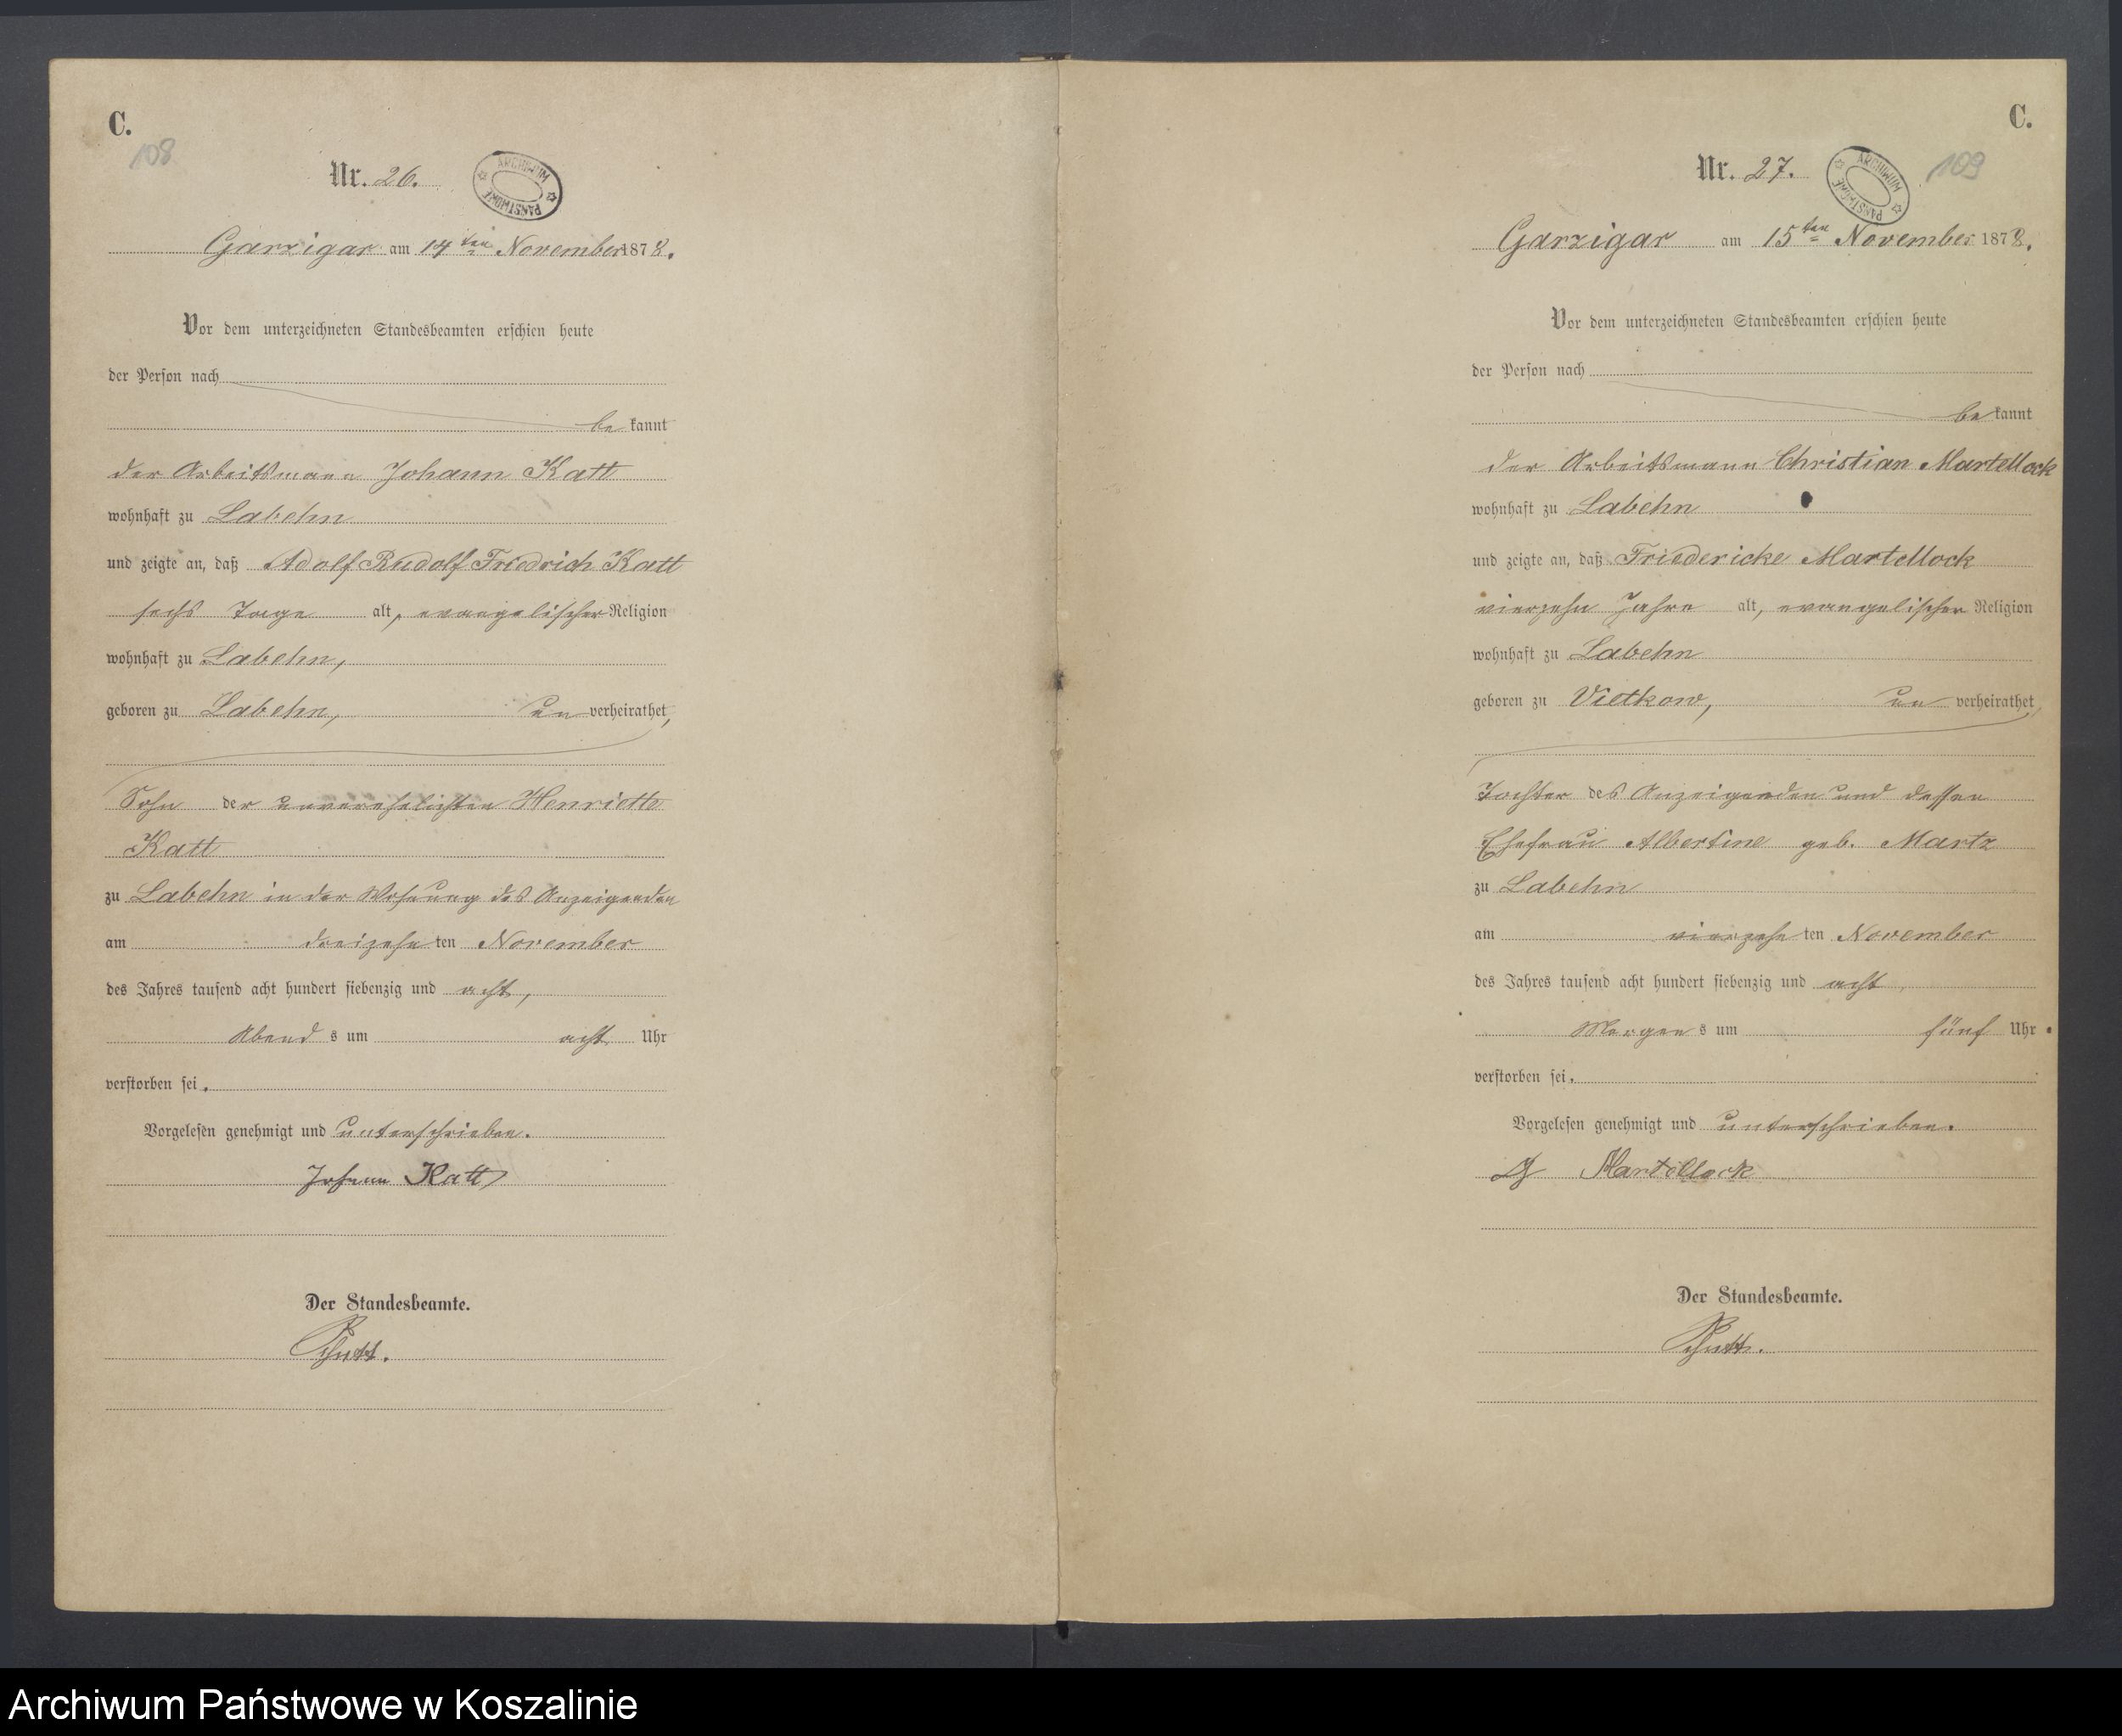 C.
108
Nr. 26.
ARCHIWUM PAŃSTWOWE
Garzigar am 14ten November 1878.
Vor dem unterzeichneten Standesbeamten erschien heute
der Person nach
bekannt
der Arbeitsmann Johann Katt
wohnhaft zu Labehn
und zeigte an, daß Adolf Rudolf Friedrich Katt
sechs Tage alt, evangelischer Religion
wohnhaft zu Labehn,
geboren zu Labehn, unverheirathet,
Sohn der unverehelichten Henriette
Katt
zu Labehn in der Wohnung des Anzeigenden
am dreizehnten November
des Jahres tausend acht hundert siebenzig und acht,
Abends um acht Uhr
verstorben sei.
Vorgelesen genehmigt und unterschrieben.
Johann Katt
Der Standesbeamte.
C.
Nr. 27.
ARCHIWUM PAŃSTWOWE
109
Garzigar am 15ten November 1878.
Vor dem unterzeichneten Standesbeamten erschien heute
der Person nach
bekannt
der Arbeitsmann Christian Martellock
wohnhaft zu Labehn
und zeigte an, daß Friedericke Martellock
vierzehn Jahre alt, evangelischer Religion
wohnhaft zu Labehn
geboren zu Vietkow, unverheirathet,
Tochter des Anzeigenden und dessen
Ehefrau Albertine geb. Martz
zu Labehn
am vierzehnten November
des Jahres tausend acht hundert siebenzig und acht,
Morgens um fünf Uhr
verstorben sei.
Vorgelesen genehmigt und unterschrieben.
Martellock
Der Standesbeamte.
Archiwum Państwowe w Koszalinie